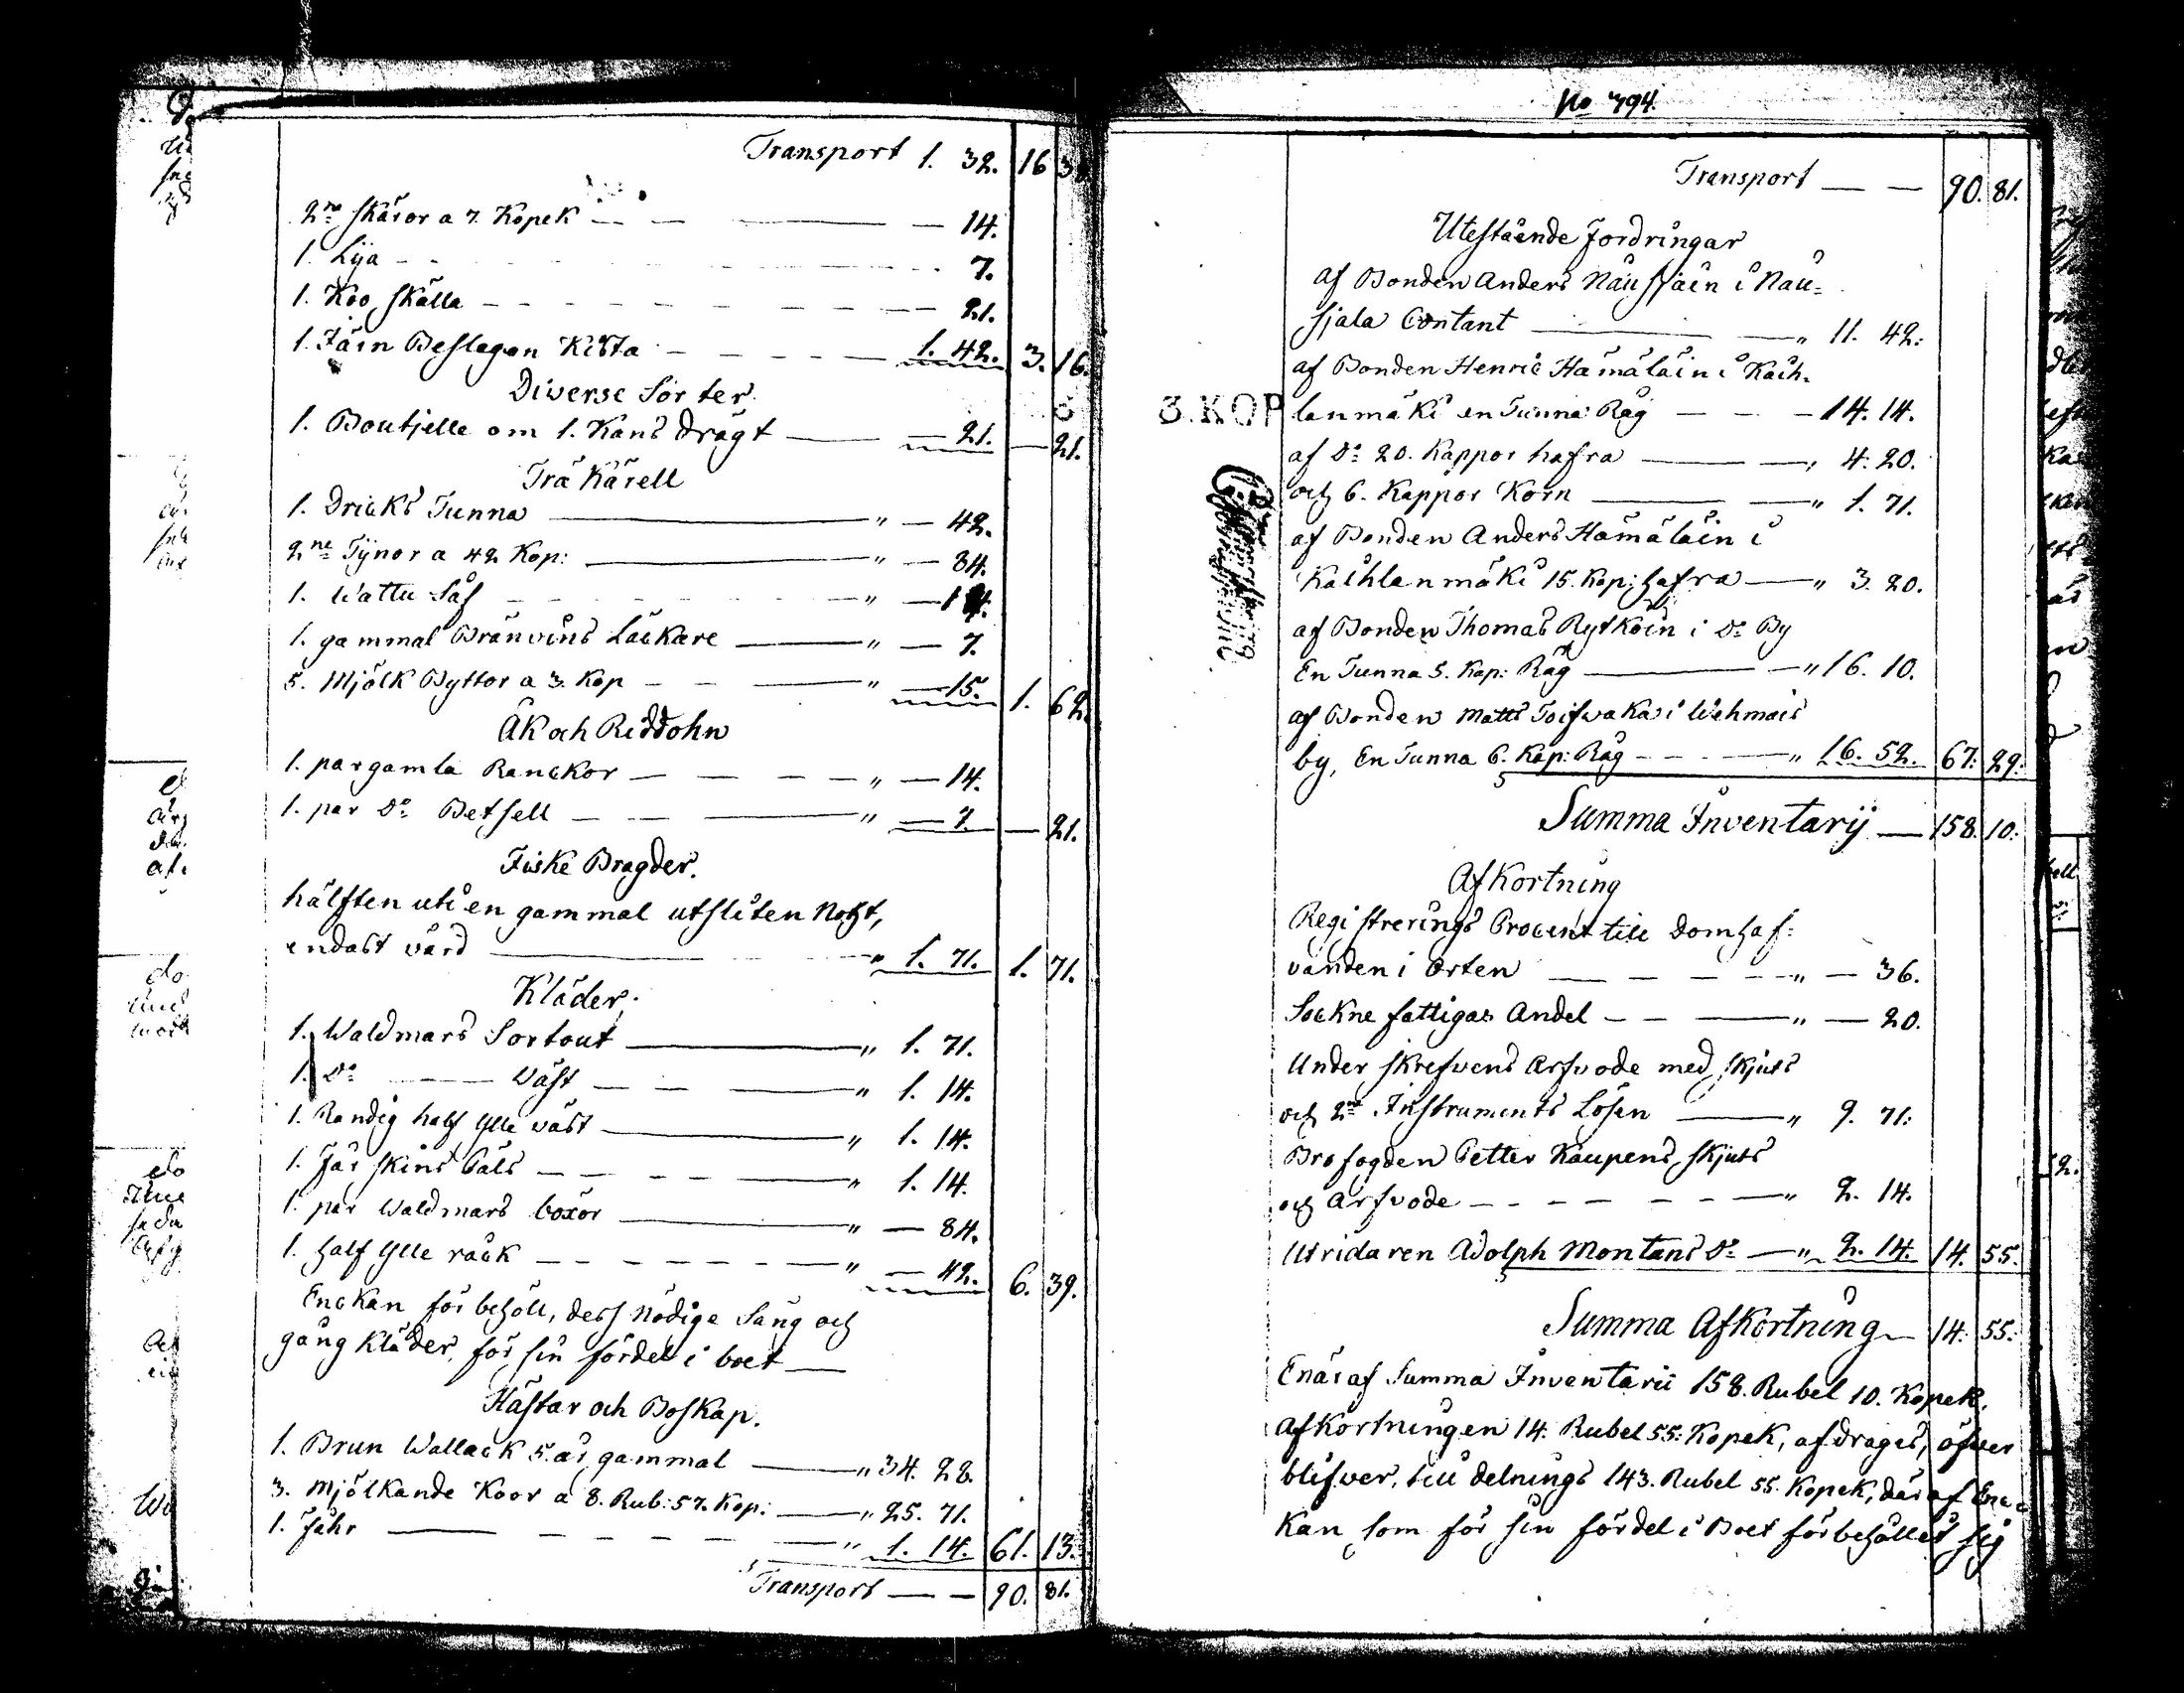 Transport 1. 32. 16 38
2ne skäror a 7. Kopek — — 14.
1. Lija — — 7.
1. Koo skälla — — 21.
1. Järn Beslagen Kista — — 1. 42. 3. 16.
Diverse Sorter.
1. Boutjelle om 1. Kans drägt — — 21. — 21.
Trä Kärell
1. Dricks Tunna — " — 42.
2ne Tÿnor a 42 Kop: — " — 84.
1. Wattu Såf — " — 14.
1. gammal Bränvins Läckare — " — 7.
5. Mjölk Byttor a 3. Kop — — " — 15. 1. 62.
Åk och Riddohn
1. par gamla Ranckor — — " — 14.
1. par do Betsell — — " — 7. — 21.
Fiske Bragder.
hälften uti en gammal utsliten Notht,
endast värd — " 1. 71. 1. 71.
Kläder.
1. Waldmars Sortout — " 1. 71.
1. do — Wäst — — " 1. 14.
1. Randig half ylle väst — " 1. 14.
1. Får skins Päls — — " 1. 14.
1. par Waldmars boxor — " — 84.
1. half ylle råck — — " — 42. 6. 39.
Enckan förbehöll, dess nödige Säng och
gång kläder, för sin fördel i boet —
Hästar och Boskap.
1. Brun Wallack 5. år gammal — " 34. 28.
3. Mjölkande Koor a 8. Rub: 57. Kop: — " 25. 71.
1. fåhr — — " 1. 14. 61. 13.
Transport — — 90. 81.
No 394.
Transport — — 90. 81.
Utestående Fordringar
af Bonden Anders Nausjain i Nau=
sjala Contant — " 11. 42.
af Bonden Henric Hämäläin i Kaih-
3. KOP
lanmäki en Tunna Råg — — 14. 14.
af do 20. Kappor hafra — " 4. 20.
och 6. Kappor Korn — " 1. 71.
af Bonden Anders Hämäläin i
Kaihlanmäki 15. Kap: hafra — " 3. 20.
af Bonden Thomas Rytköin i do By
En Tunna 5. Kap: Råg — " 16. 10.
af Bonden Matts Toifwaka i Wehmais
by, En Tunna 6. Kap: Råg — " 16. 52. 67. 29.
Summa Inventarij — 158. 10.
Afkortning
Registrerings Procent till Domhaf=
vanden i Orten — — " — 36.
Sockne fattigas Andel — — " — 20.
Under skrefvens Arfvode med skjuts
och 2ne Instruments Lösen — " 9. 71.
Brofogden Petter Kaupens skjuts
och Arfvode — — " 2. 14.
Utridaren Adolph Montens do — " 2. 14. 14. 55.
Summa Afkortning — 14. 55.
Enär af Summa Inventarii 158. Rubel 10. Kopek.
afkortningen 14. Rubel 55. Kopek, afdrages, öfver
blifver, till delnings 143. Rubel 55. Kopek, där af Enc=
kan som för sin fördel i Boet förbehållet sig